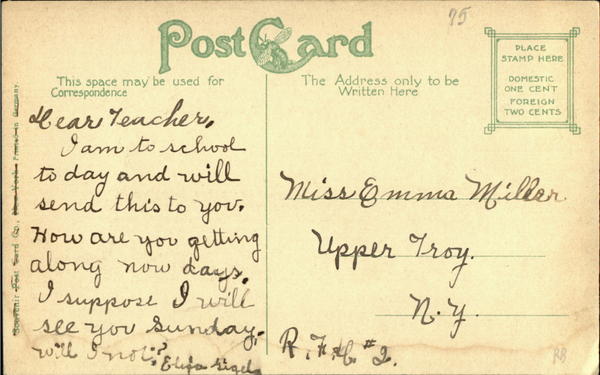 75
Post Card
PLACE
STAMP HERE
DOMESTIC
ONE CENT
FOREIGN
TWO CENTS
This space may be used for
Correspondence
The Address only to be
Written Here
Dear Teacher,
I am to school
to day and will
send this to you.
How are you getting
along now days.
I suppose I will
see you Sunday,
will I not?
Miss Emma Miller
Upper Troy.
N.Y.
R. F. #2.
Souvenir Post Card Co., New York Printed in Germany